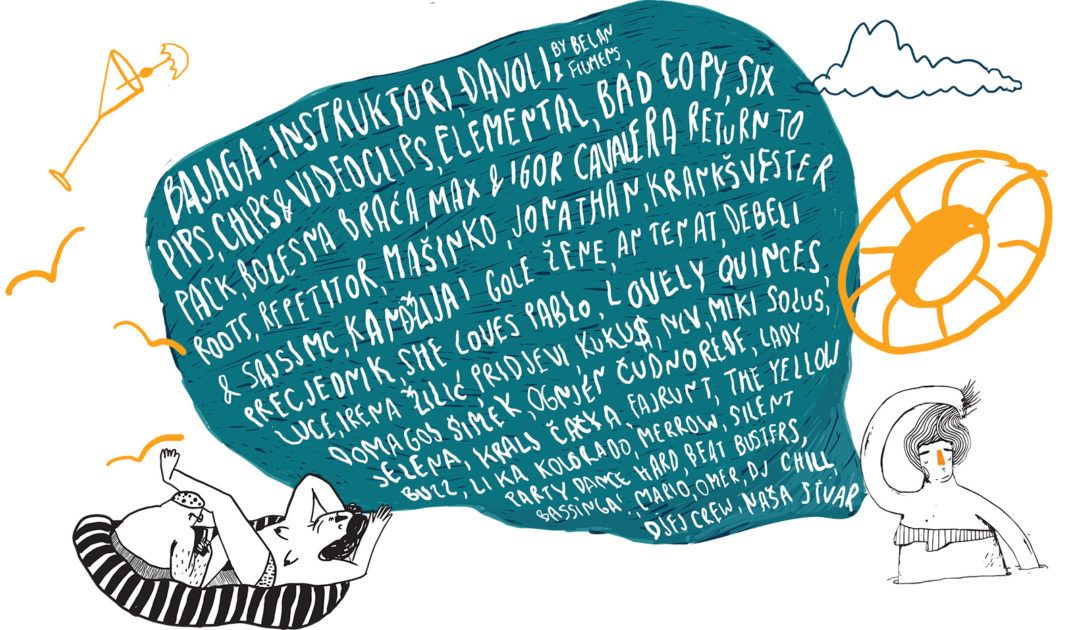 BAJAGA I INSTRUKTORI, DAVOLI, BY BELAN & FIUMENS,
PIPS, CHIPS & VIDEOCLIPS, ELEMENTAL, BAD COPY, SIX
PACK, BOLESNA BRAĆA, MAX & IGOR CAVALERA RETURN TO
ROOTS, REPETITOR, MAŠINKO, JONATHAN, KRANKŠVESTER
& SAJSI MC, KANDŽIJA I GOLE ŽENE, ANTENAT, DEBELI
PRECJEDNIK, SHE LOVES PABLO, LOVELY QUINCES,
LUCE, IRENA ŽILIĆ, PRIDJEVI, KUKU$, NLV, MIKI SOLUS,
DOMAGOJ ŠIMEK, OGNJEN ČUDNOREĐE, LADY
SELENA, KRALJ ČAČKA, FAJRUNT, THE YELLOW
BUZZ, LIKA KOLORADO, MERROW, SILENT
PARTY, DANCE HARD, BEAT BUSTERS,
BASSINGA!, MARIO, OMER, DJ CHILL,
DJFJ CREW, NAŠA STVAR